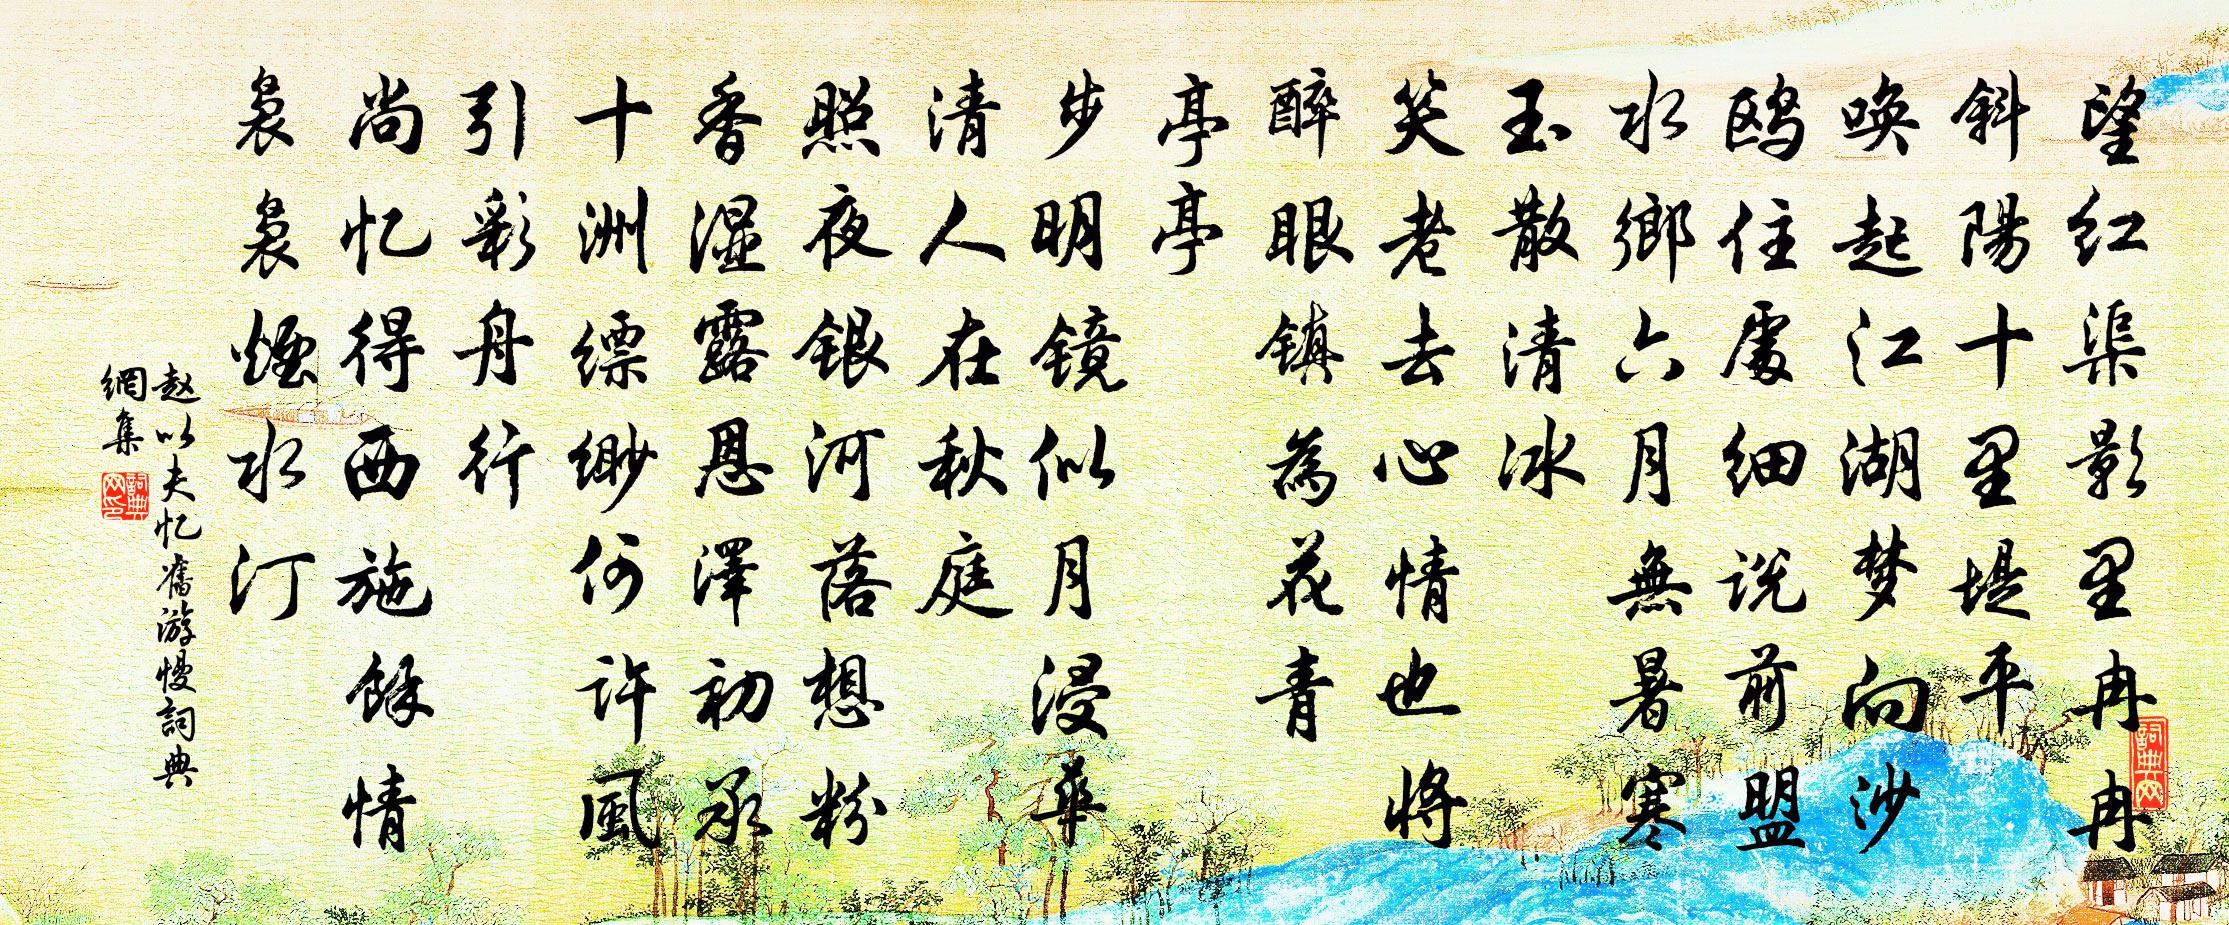 望红渠影里冉冉
斜陽十里堤平
唤起江湖梦向沙
鸥住處细说前盟
水鄉六月無暑寒
玉散清冰
笑老去心情也将
醉眼镇為花青
亭亭
步明镜似月浸華
清人在秋庭
照夜银河落想粉
香湿露恩澤初承
十洲缥缈何许風
引彩舟行
尚忆得西施餘情
袅袅煙水汀
赵以夫忆舊游慢詞典
網集
詞典网
詞典网印